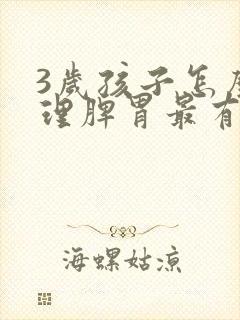 3岁孩子怎
理脾胃最有
海螺姑凉